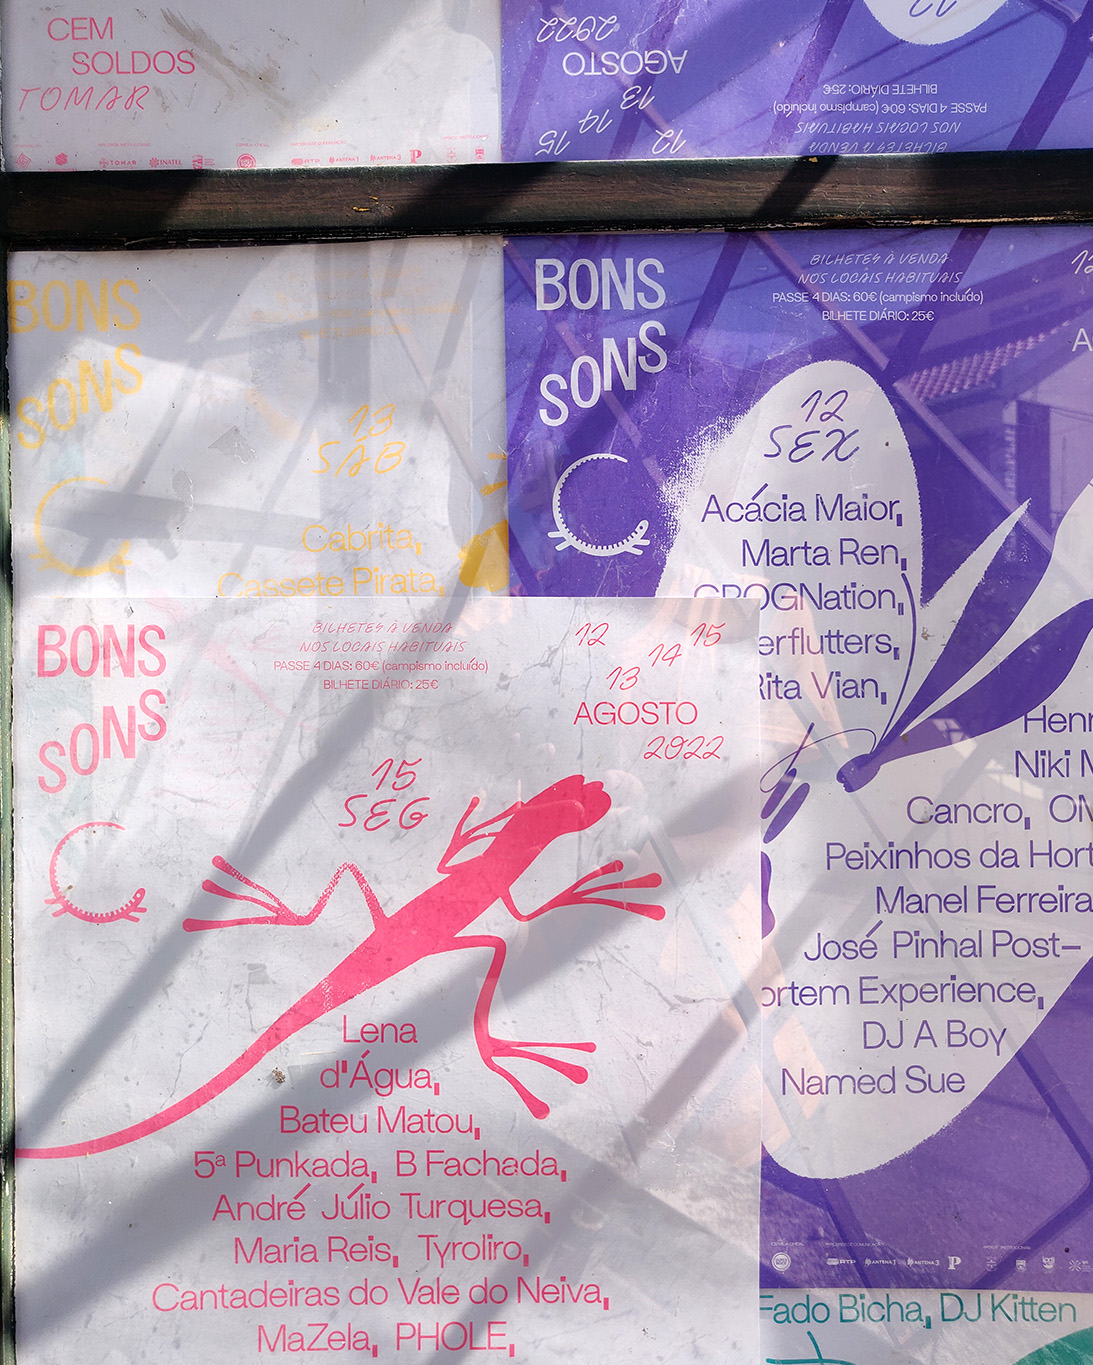 CEM
SOLDOS
TOMAR
TOMAR
INATEL
RTP
ANTENA 1
ANTENA 3
P
12
2022
AGOSTO
13
14
15
12
BILHETE DIÁRIO: 25€
PASSE 4 DIAS: 60€ (campismo incluído)
NOS LOCAIS HABITUAIS
BILHETES À VENDA
BONS
SONS
13
SAB
Cabrita,
Cassete Pirata,
BONS
SONS
BILHETES À VENDA
NOS LOCAIS HABITUAIS
PASSE 4 DIAS: 60€ (campismo incluído)
BILHETE DIÁRIO: 25€
12
SEX
Acácia Maior,
Marta Ren,
CROGNation,
erflutters,
Rita Vian,
Henr
Niki M
Cancro, ON
Peixinhos da Hort
Manel Ferreira
José Pinhal Post-
ortem Experience,
DJ A Boy
Named Sue
RTP
ANTENA 1
ANTENA 3
P
BONS
SONS
BILHETES À VENDA
NOS LOCAIS HABITUAIS
PASSE 4 DIAS: 60€ (campismo incluído)
BILHETE DIÁRIO: 25€
12
13
14
15
AGOSTO
2022
15
SEG
Lena
d'Água,
Bateu Matou,
5ª Punkada, B Fachada,
André Júlio Turquesa,
Maria Reis, Tyroliro,
Cantadeiras do Vale do Neiva,
MaZela, PHOLE,
Fado Bicha, DJ Kitten